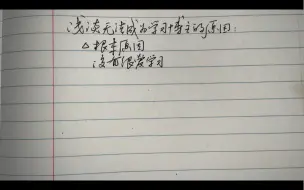 浅谈无法成为学习博主的原因:
△根本原因
没有很爱学习